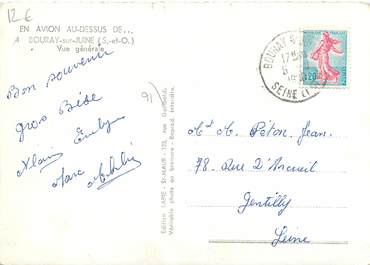 12 €
EN AVION AU-DESSUS DE...
A BOURAY-sur-JUINE (S.-et-O.)
Vue générale
Bon souvenir
gros Bébé
Evelyne
Alain
Marc
91
Edition LAPIE - St-MAUR - 125, rue Garibaldi
Véritable photo au bromure - Reprod. Interdite.
BOURAY
SEINE ET
0,20
Mr Mme Péton Jean.
78 Rue d'Arcueil
Gentilly
Seine